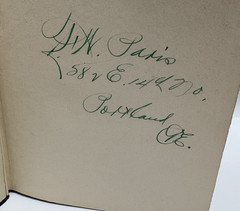 G. W. Paris
582 E. 14th No.
Portland OE.